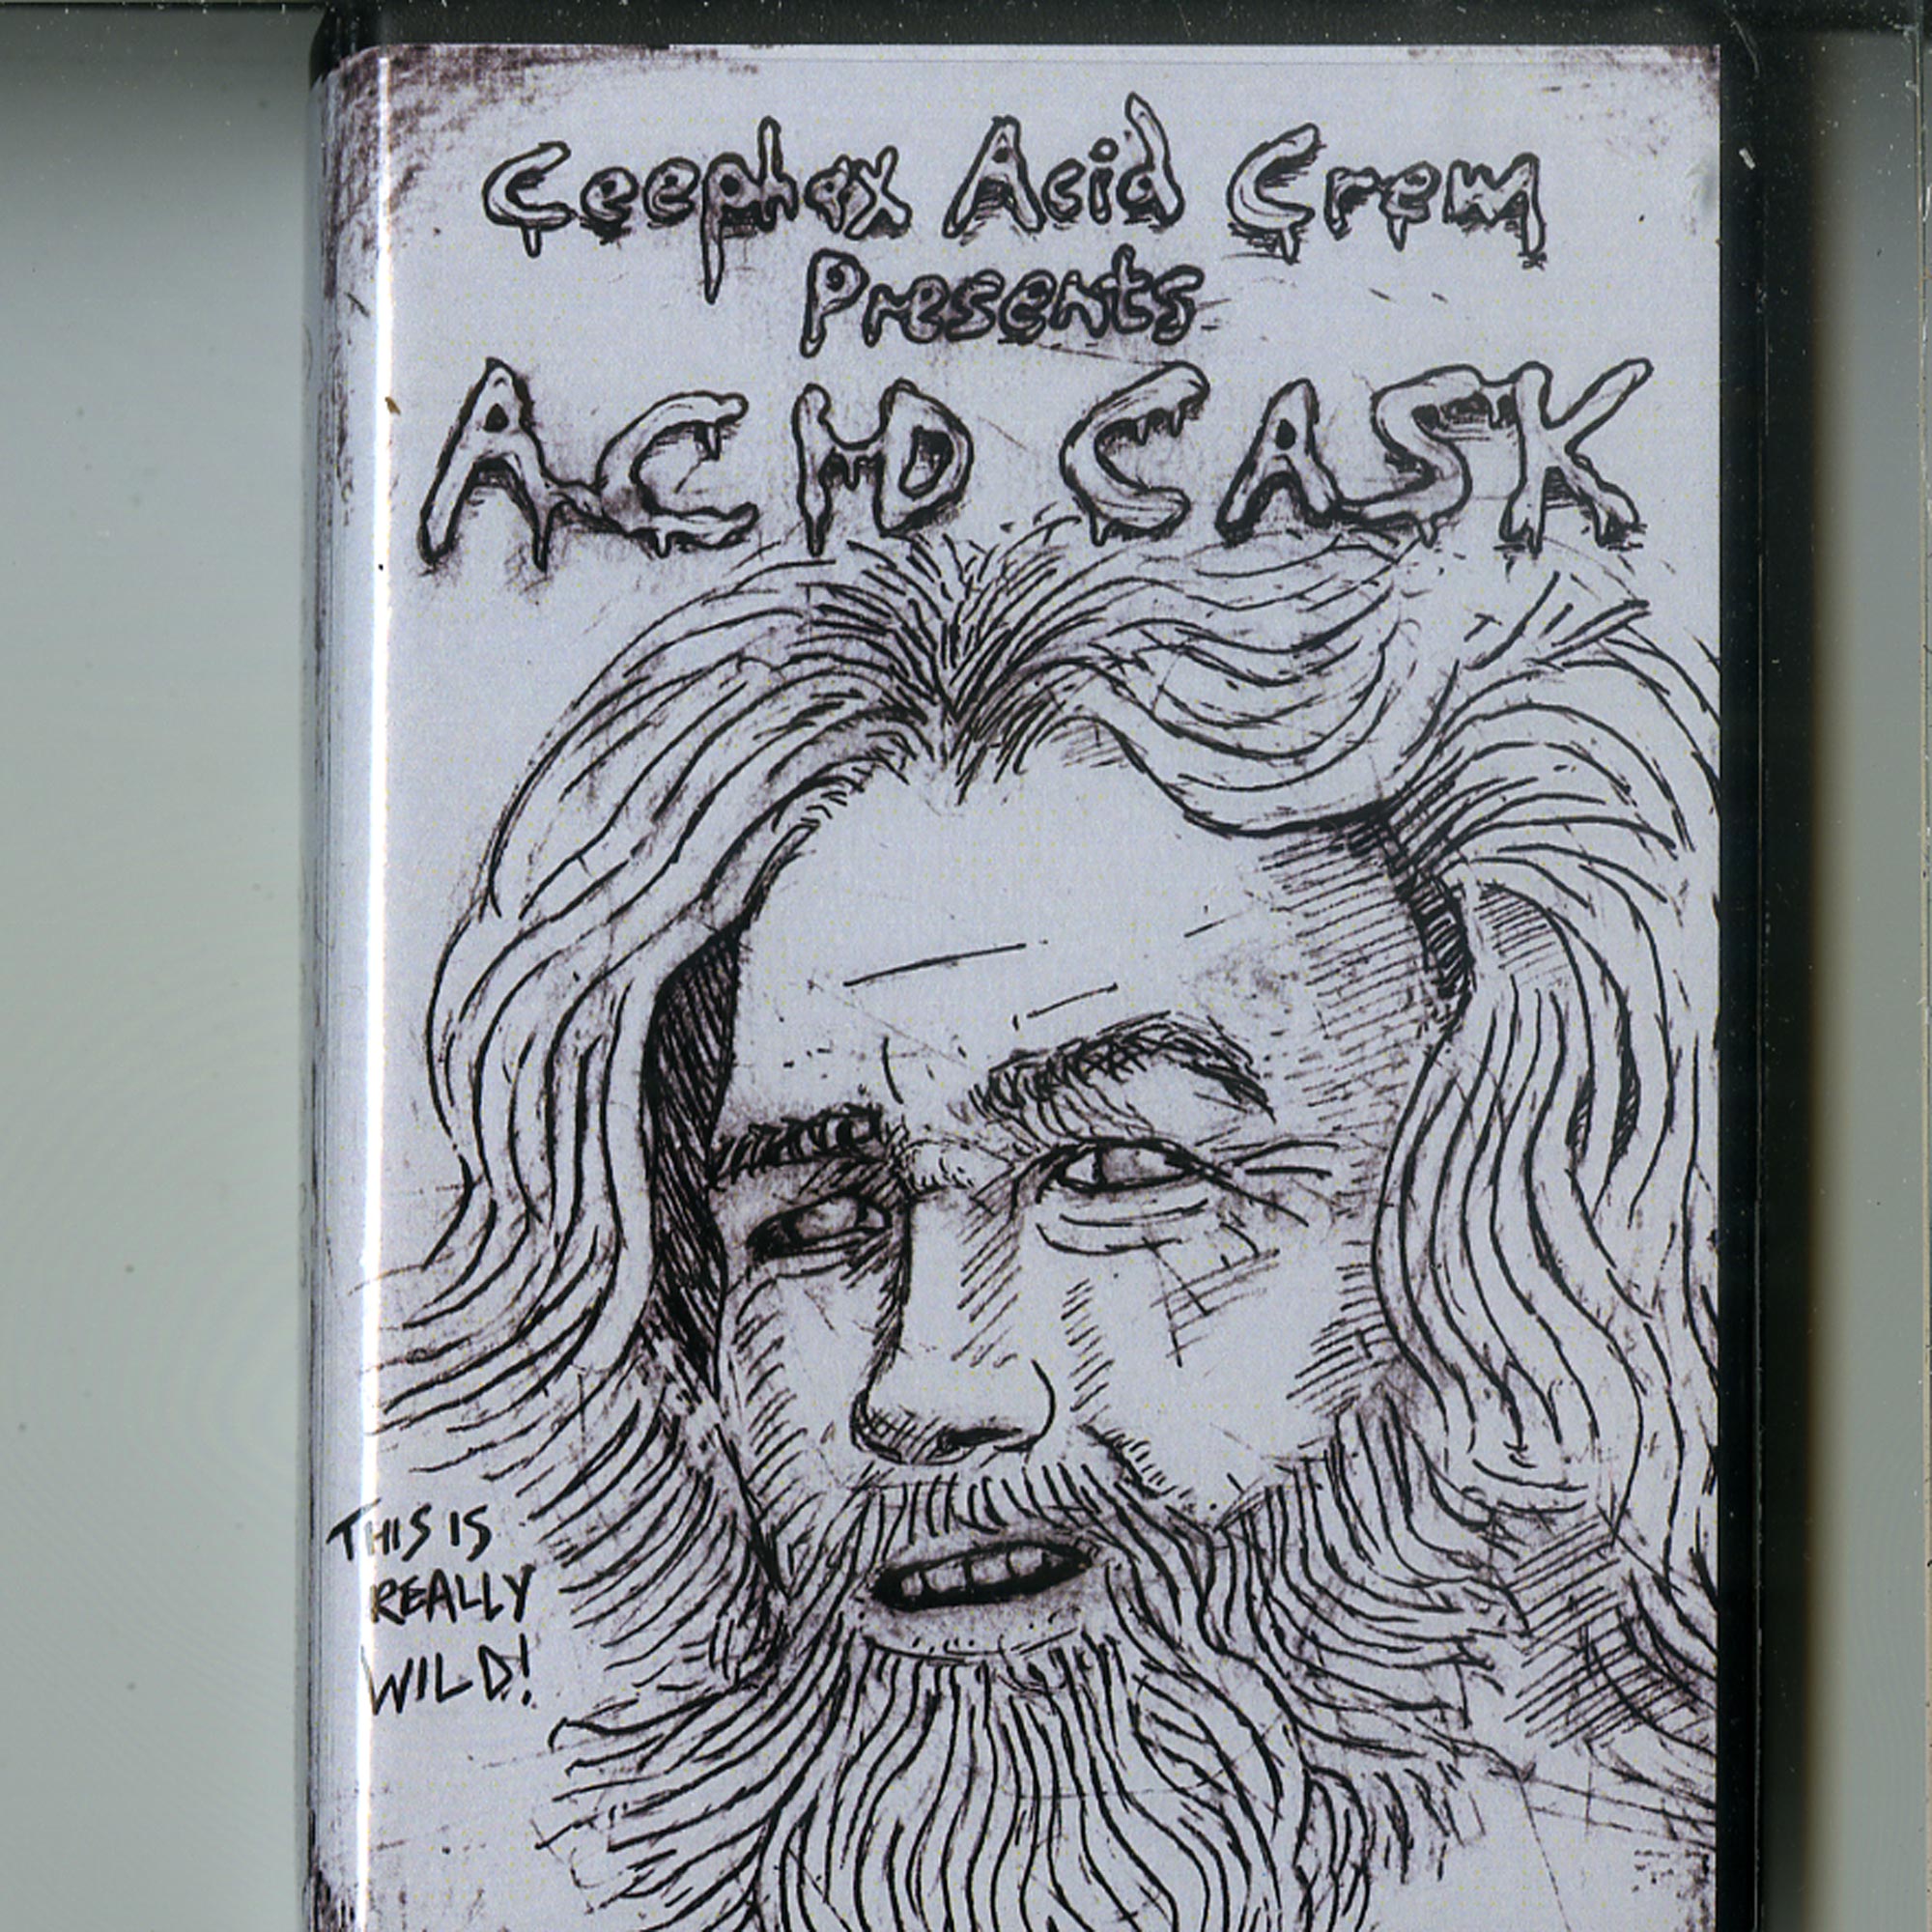 Ceephax Acid Crew
Presents
ACID CASK
THIS IS
REALLY
WILD!